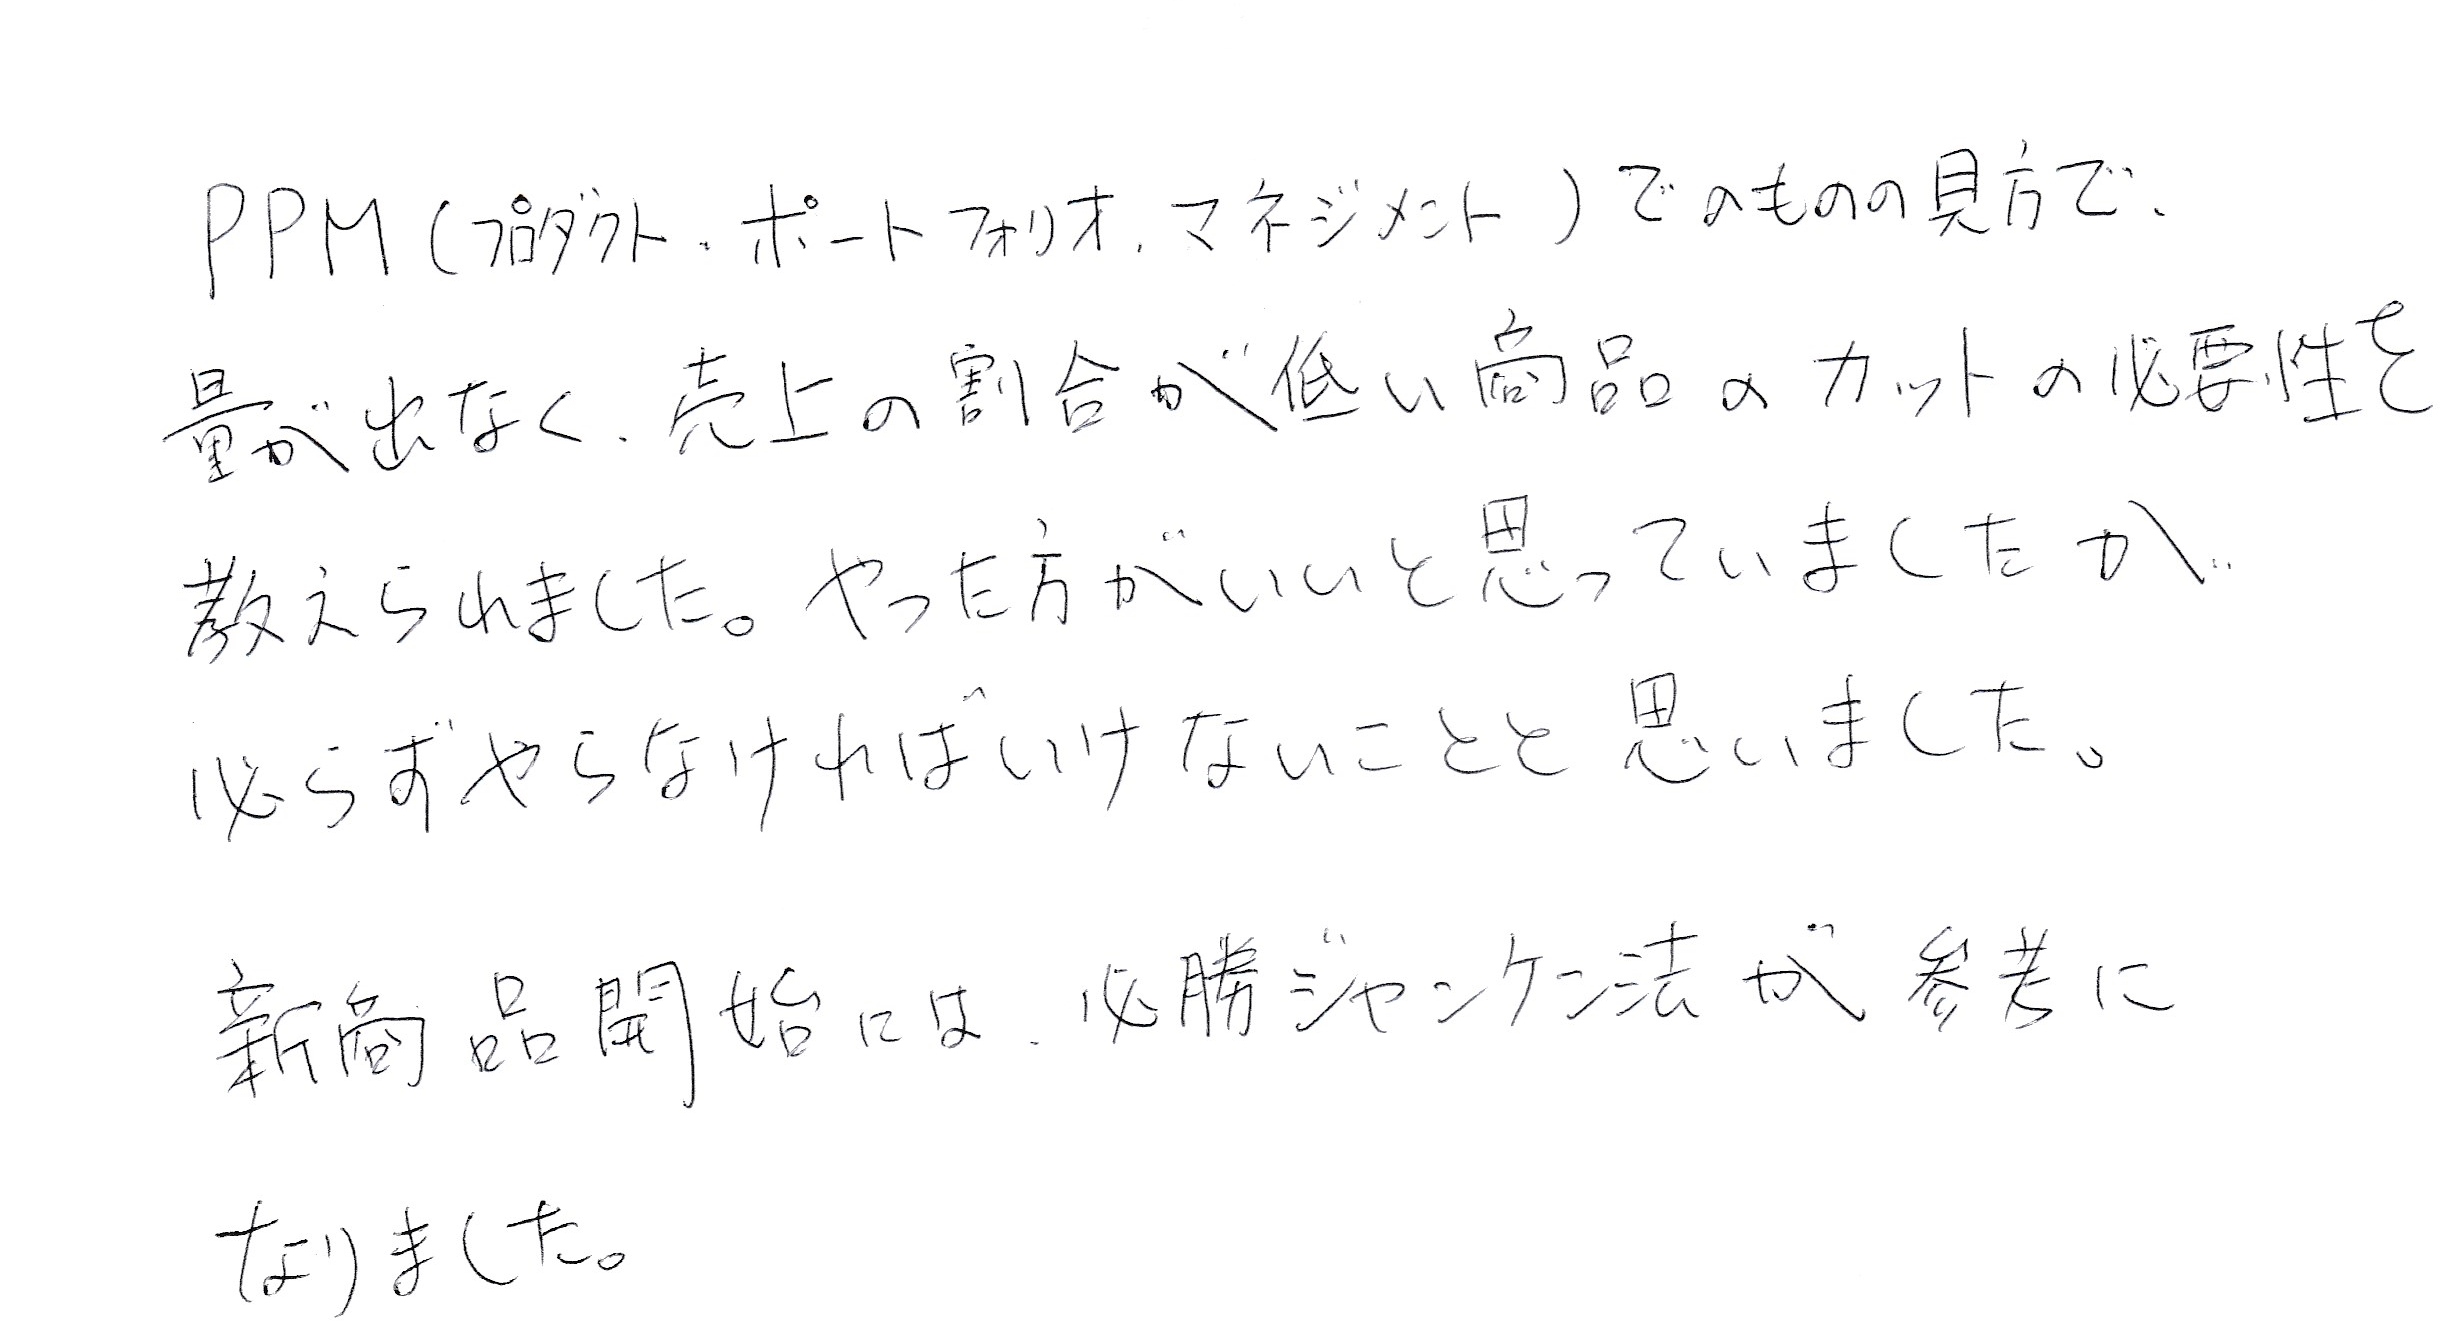 PPM(プロダクト・ポートフォリオ・マネジメント)でのものの見方で、
量が出なく、売上の割合が低い商品のカットの必要性を
教えられました。やった方がいいと思っていましたが、
必らずやらなければいけないことと思いました。
新商品開始には、必勝ジャンケン法が参考に
なりました。